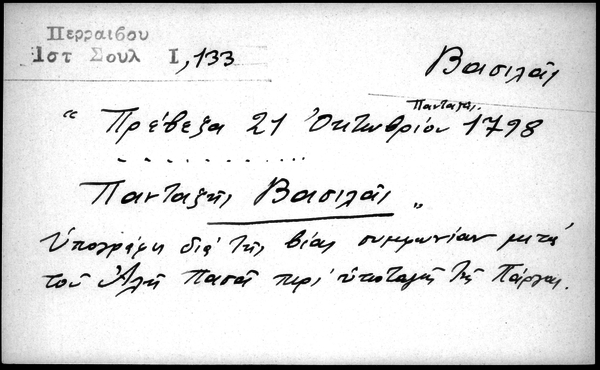 Περραιβου
Ιστ Σουλ Ι,133
Βασιλᾶς
Πανταζῆς
" Πρέβεζα 21 Ὀκτωβρίου 1798
. . . . . . . . . . .
Πανταζῆς Βασιλᾶς "
Ὑπογράφει διὰ τῆς βίας συμφωνίαν μετὰ
τοῦ Ἀλῆ Πασᾶ περὶ ὑποταγῆς τῆς Πάργας.